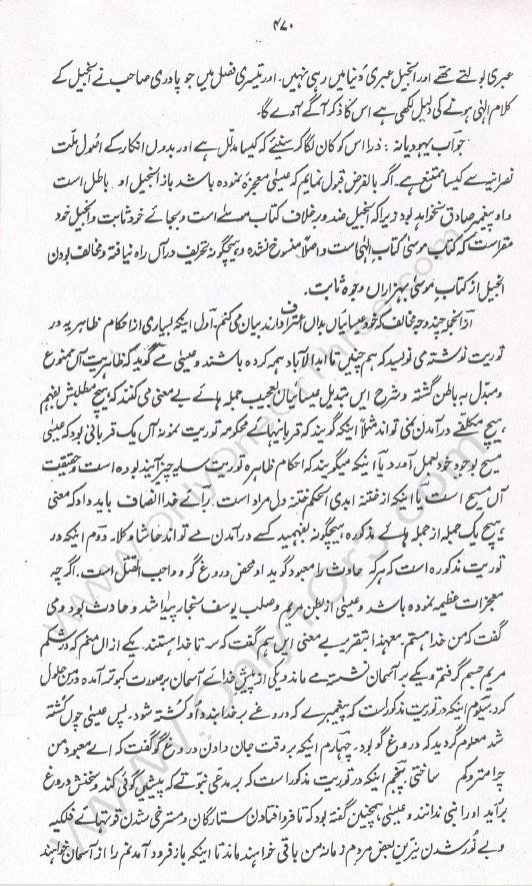 ۴۷۰
عبری بولتے تھے اور انجیل عبری دُنیا میں رہی نہیں۔ اور تیسری فصل میں جو پادری صاحب نے انجیل کے
کلام الٰہی ہونے کی دلیل لکھی ہے اس کا ذکر آگے آوے گا۔
جواب یہودیانہ : ذرا اس کو کان لگا کر سنیئے کہ کیسا مدلل ہے اور بدوں انکار کے اصُولِ ملّت
نصرانیہ سے کیسا ممتنع ہے۔ اگر بالفرض قبول نمایم کہ عیسیٰ معجزہ نمودہ باشد باز انجیل او باطل است
و او پیغمبر صادق نخواہد بود زیرا کہ انجیل ضد و خلاف کتاب موسےٰ است و بجائے خود ثابت و انجیل خود
مقر است کہ کتاب موسیٰ کتاب الٰہی است و اصلاً منسوخ نشدہ و ہیچگونہ تحریف در آں راہ نیافتہ و مخالف بودن
انجیل از کتاب موسیٰ بہزاراں وجوہ ثابت۔
از انجملہ چند وجہ مخالف کہ خود عیسائیاں بداں اعتراف دارند بیان می کنم، اول اینکہ بسیاری از احکام ظاہریہ در
توریت نوشتہ می نویسید کہ ہم چنیں تا ابد الآباد ہمہ کردہ باشند و عیسیٰ مے گوید کہ ظاہریت آں ممنوع
و مبدّل بہ باطن گشتہ و شرح ایں تبدیل عیسایان بعجیب جملہ ہائے بے معنی می کنند کہ ہیچ مطلبش بفہم
ہیچ مکلفے در آمدن نمی تواند مثلاً اینکہ گویند کہ قربانیہائے محکومہ توریت نمونہ آں یک قربانی بود کہ عیسیٰ
مسیح بوجود خود بعمل آورد یا اینکہ میگویند کہ احکام ظاہرہ توریت سایہ چیز آیندہ بودہ است و حقیقت
آں مسیح است یا اینکہ از ختنہ ابدی الحکم ختنہ دل مراد است۔ برائے خدا انصاف باید داد کہ معنی
ہیچ یک جملہ از جملہ ہائے مذکورہ ہیچگونہ بفہمید کسے در آمدن مے تواند حاشا و کلا۔ دوم اینکہ در
توریت مذکورہ است کہ ہر کہ حادث را معبود گوید او محض دروغ گو و واجب القتل است۔ اگر چہ
معجزات عظیمہ نمودہ باشد و عیسیٰ از بطن مریم و صلب یوسف نجار پیدا شد و حادث بود و می
گفت کہ من خدا ہستم۔ معہذا بتقریر بے معنی ایں ہم گفت کہ سہ تا خدا ہستند یکے ازاں منم کہ در شکم
مریم جسم گرفتم و یکے بر آسمان نشستہ مے ماند و یکی از پیش خدائے آسمان بر صورت کبوتر آمدہ در من حلول
کرد، سیُوم اینکہ در توریت مذکور است کہ پیغمبرے کہ دروغے بر خدا بندد او کشتہ شود۔ پس عیسیٰ چوں کشتہ
شد معلوم گردید کہ دروغ گو بود۔ چہارم اینکہ بر وقت جان دادن دروغ گو گفت کہ اے معبود من
چرا متروکم ساختی۔ پنجم اینکہ در توریت مذکور است کہ ہر مدعی نبوتے کہ پیشیں گوئی کند و سخنش دروغ
برآید او را نبی ندانند و عیسیٰ ہمچنیں گفتہ بود کہ تا فرو افتادن ستارگان و مسترخی شدن قوتہائے فلکیہ
و بے نور شدن نیرین بعض مردم زمانہ من باقی خواہند ماند تا اینکہ باز فرود آمدنم را از آسمان خواہند
www.OnlyOneOrThree.com